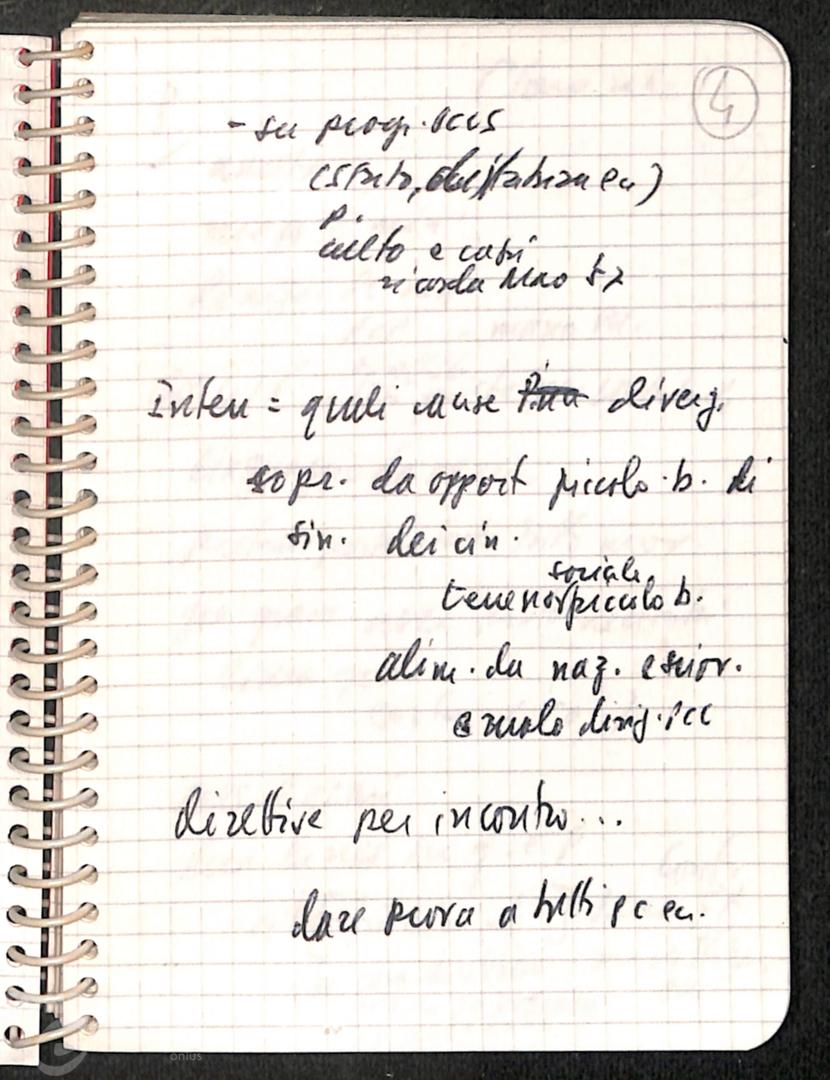 4
- su progr. PCUS
(stato, dusl
p.
culto e catri
ricorda Mao 57
Interr = quali cause diverg.
sopr. da opport piccolo. b. di
sin. dei cin.
sociale
terreno piccolo b.
alim. da naz. e scior.
e ruolo dirig. PCC
direttive per incontro...
dare prova a tutti pc eu.